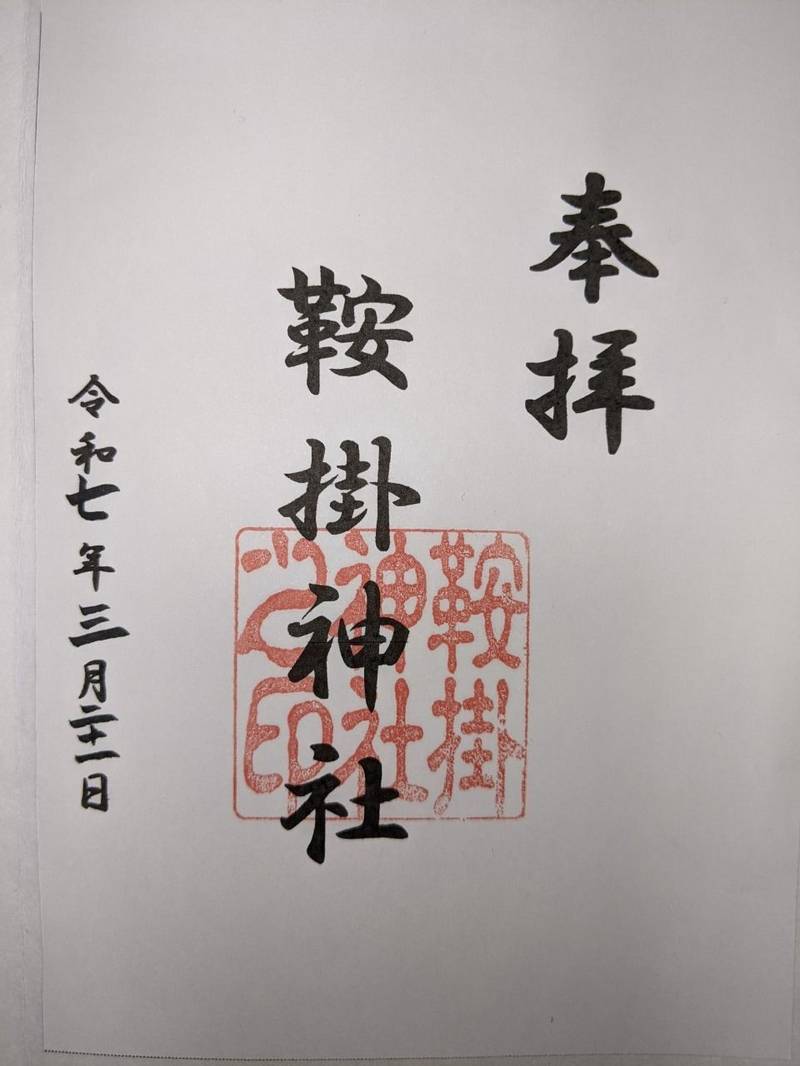 奉拝
鞍掛神社
鞍掛
神社
之印
令和七年三月二十一日